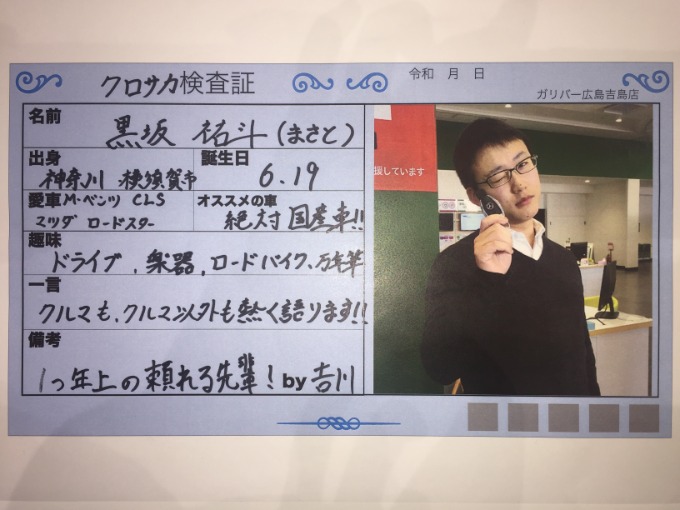 クロサカ検査証
令和 月 日
ガリバー広島吉島店
名前
黒坂 祐斗(まさと)
出身
神奈川 横須賀市
誕生日
6.19
愛車 M・ベンツ CLS
マツダ ロードスター
オススメの車
絶対 国産車!!
趣味
ドライブ、楽器、ロードバイク、万年筆
一言
クルマも、クルマ以外も熱く語ります!!
備考
1つ年上の頼れる先輩! by 吉川
援しています